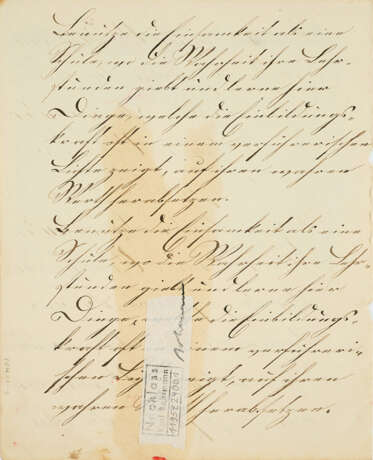 Benütze die Einsamkeit als eine
Schule, wo die Wahrheit ihre Lehr-
stunden giebt und lerne hier
Dinge, welche die Einbildungs-
kraft oft in einem verführerischen
Lichte zeigt, auf ihren wahren
Werth herabsetzen.
Benütze die Einsamkeit als eine
Schule, wo die Wahrheit ihre Lehr-
stunden giebt und lerne hier
Dinge, die Einbildungs-
kraft oft einem verführeri-
schen zeigt, auf ihren
wahren Werth herabsetzen.
Nachlass